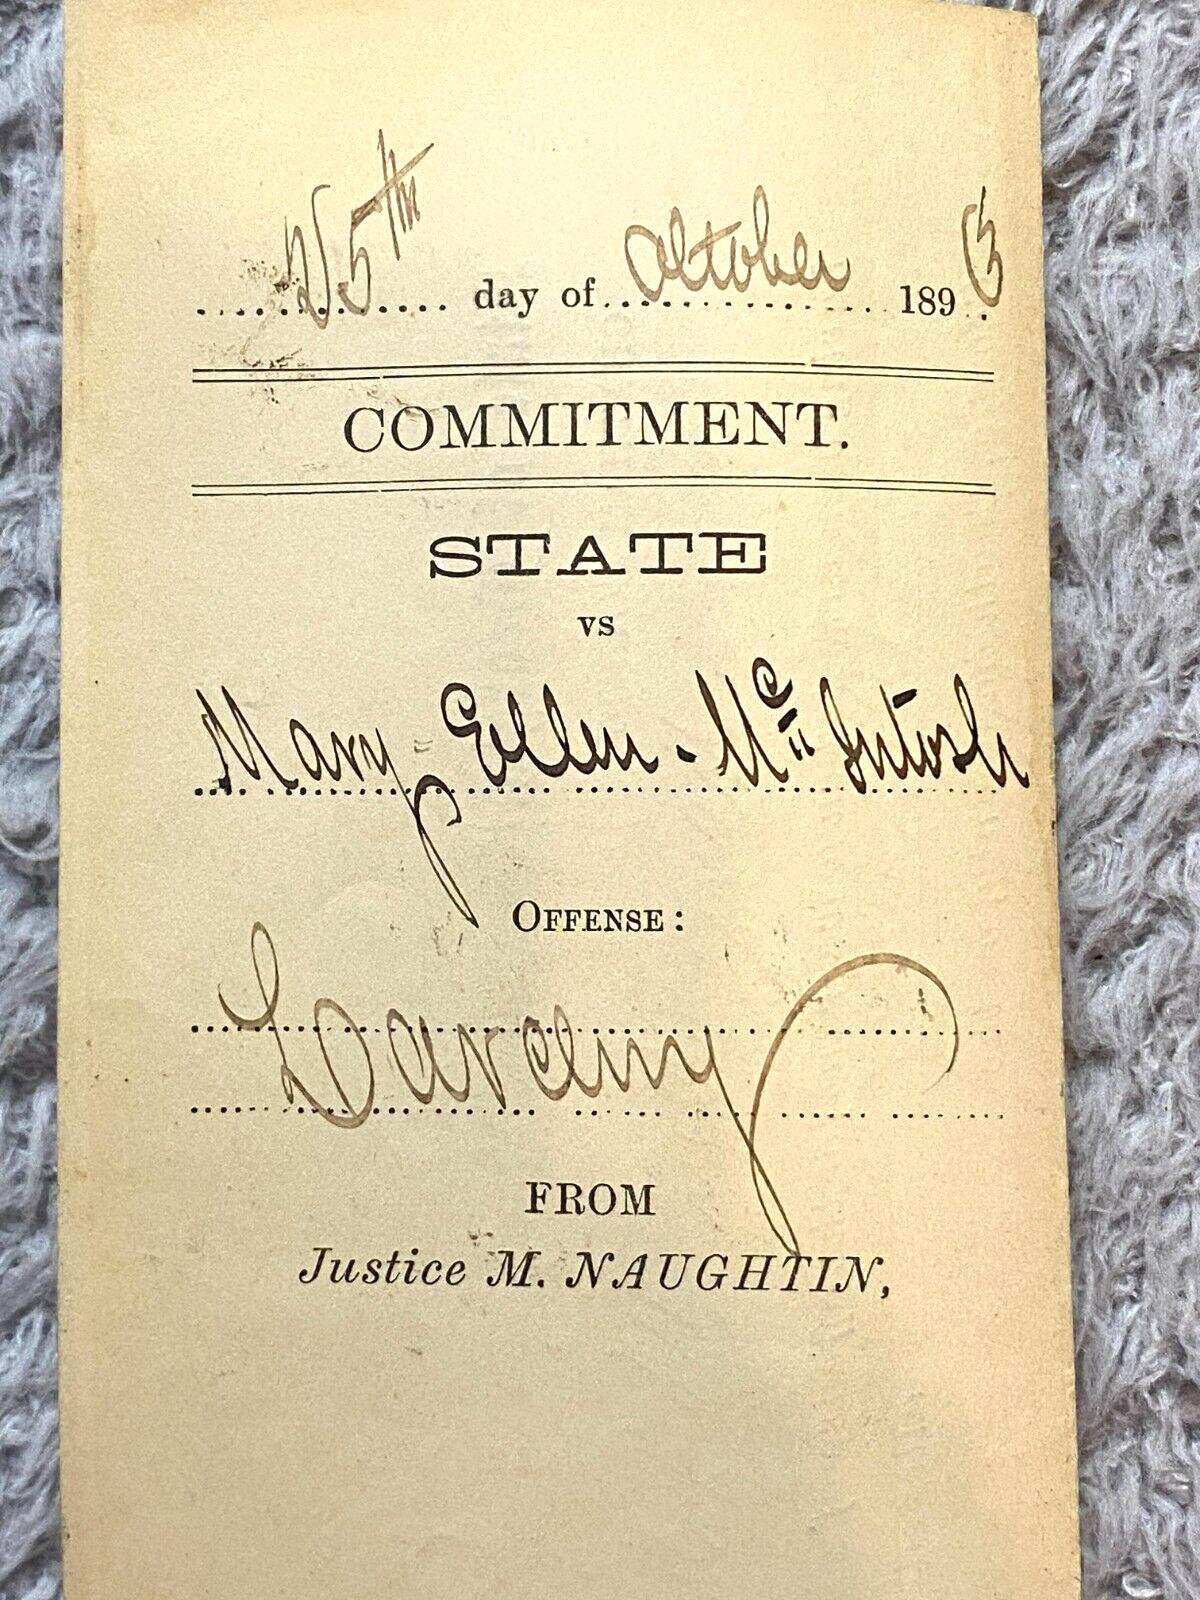 25th day of October 1893
COMMITMENT.
STATE
vs
Mary Ellen Mc Intosh
OFFENSE:
Larceny
FROM
Justice M. NAUGHTIN,